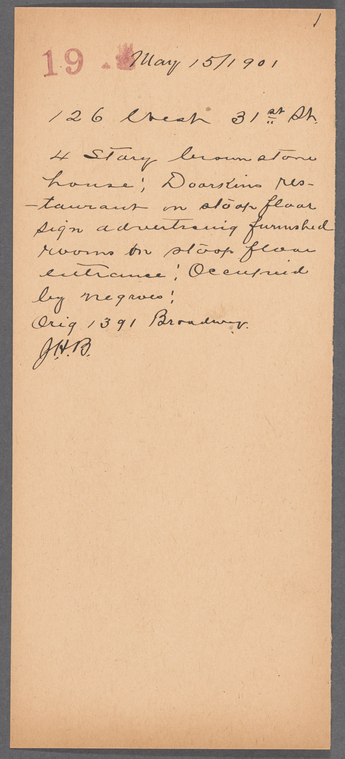 1
19 May 15/1901
126 West 31st St.
4 Story brown stone
house; Doorskins res-
-taurant on stoop floor
sign advertising furnished
rooms on stoop floor
entrance; Occupied
by negroes;
Orig 1391 Broadway.
J.H.B.